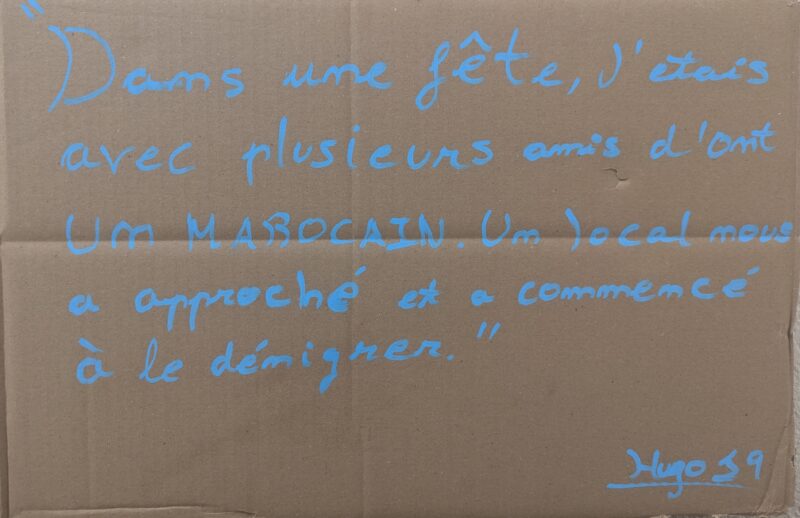 "Dans une fête, j'etais
avec plusieurs amis d'ont
UN MAROCAIN. Un local nous
a approché et a commencé
à le démigrer."
Hugo 19